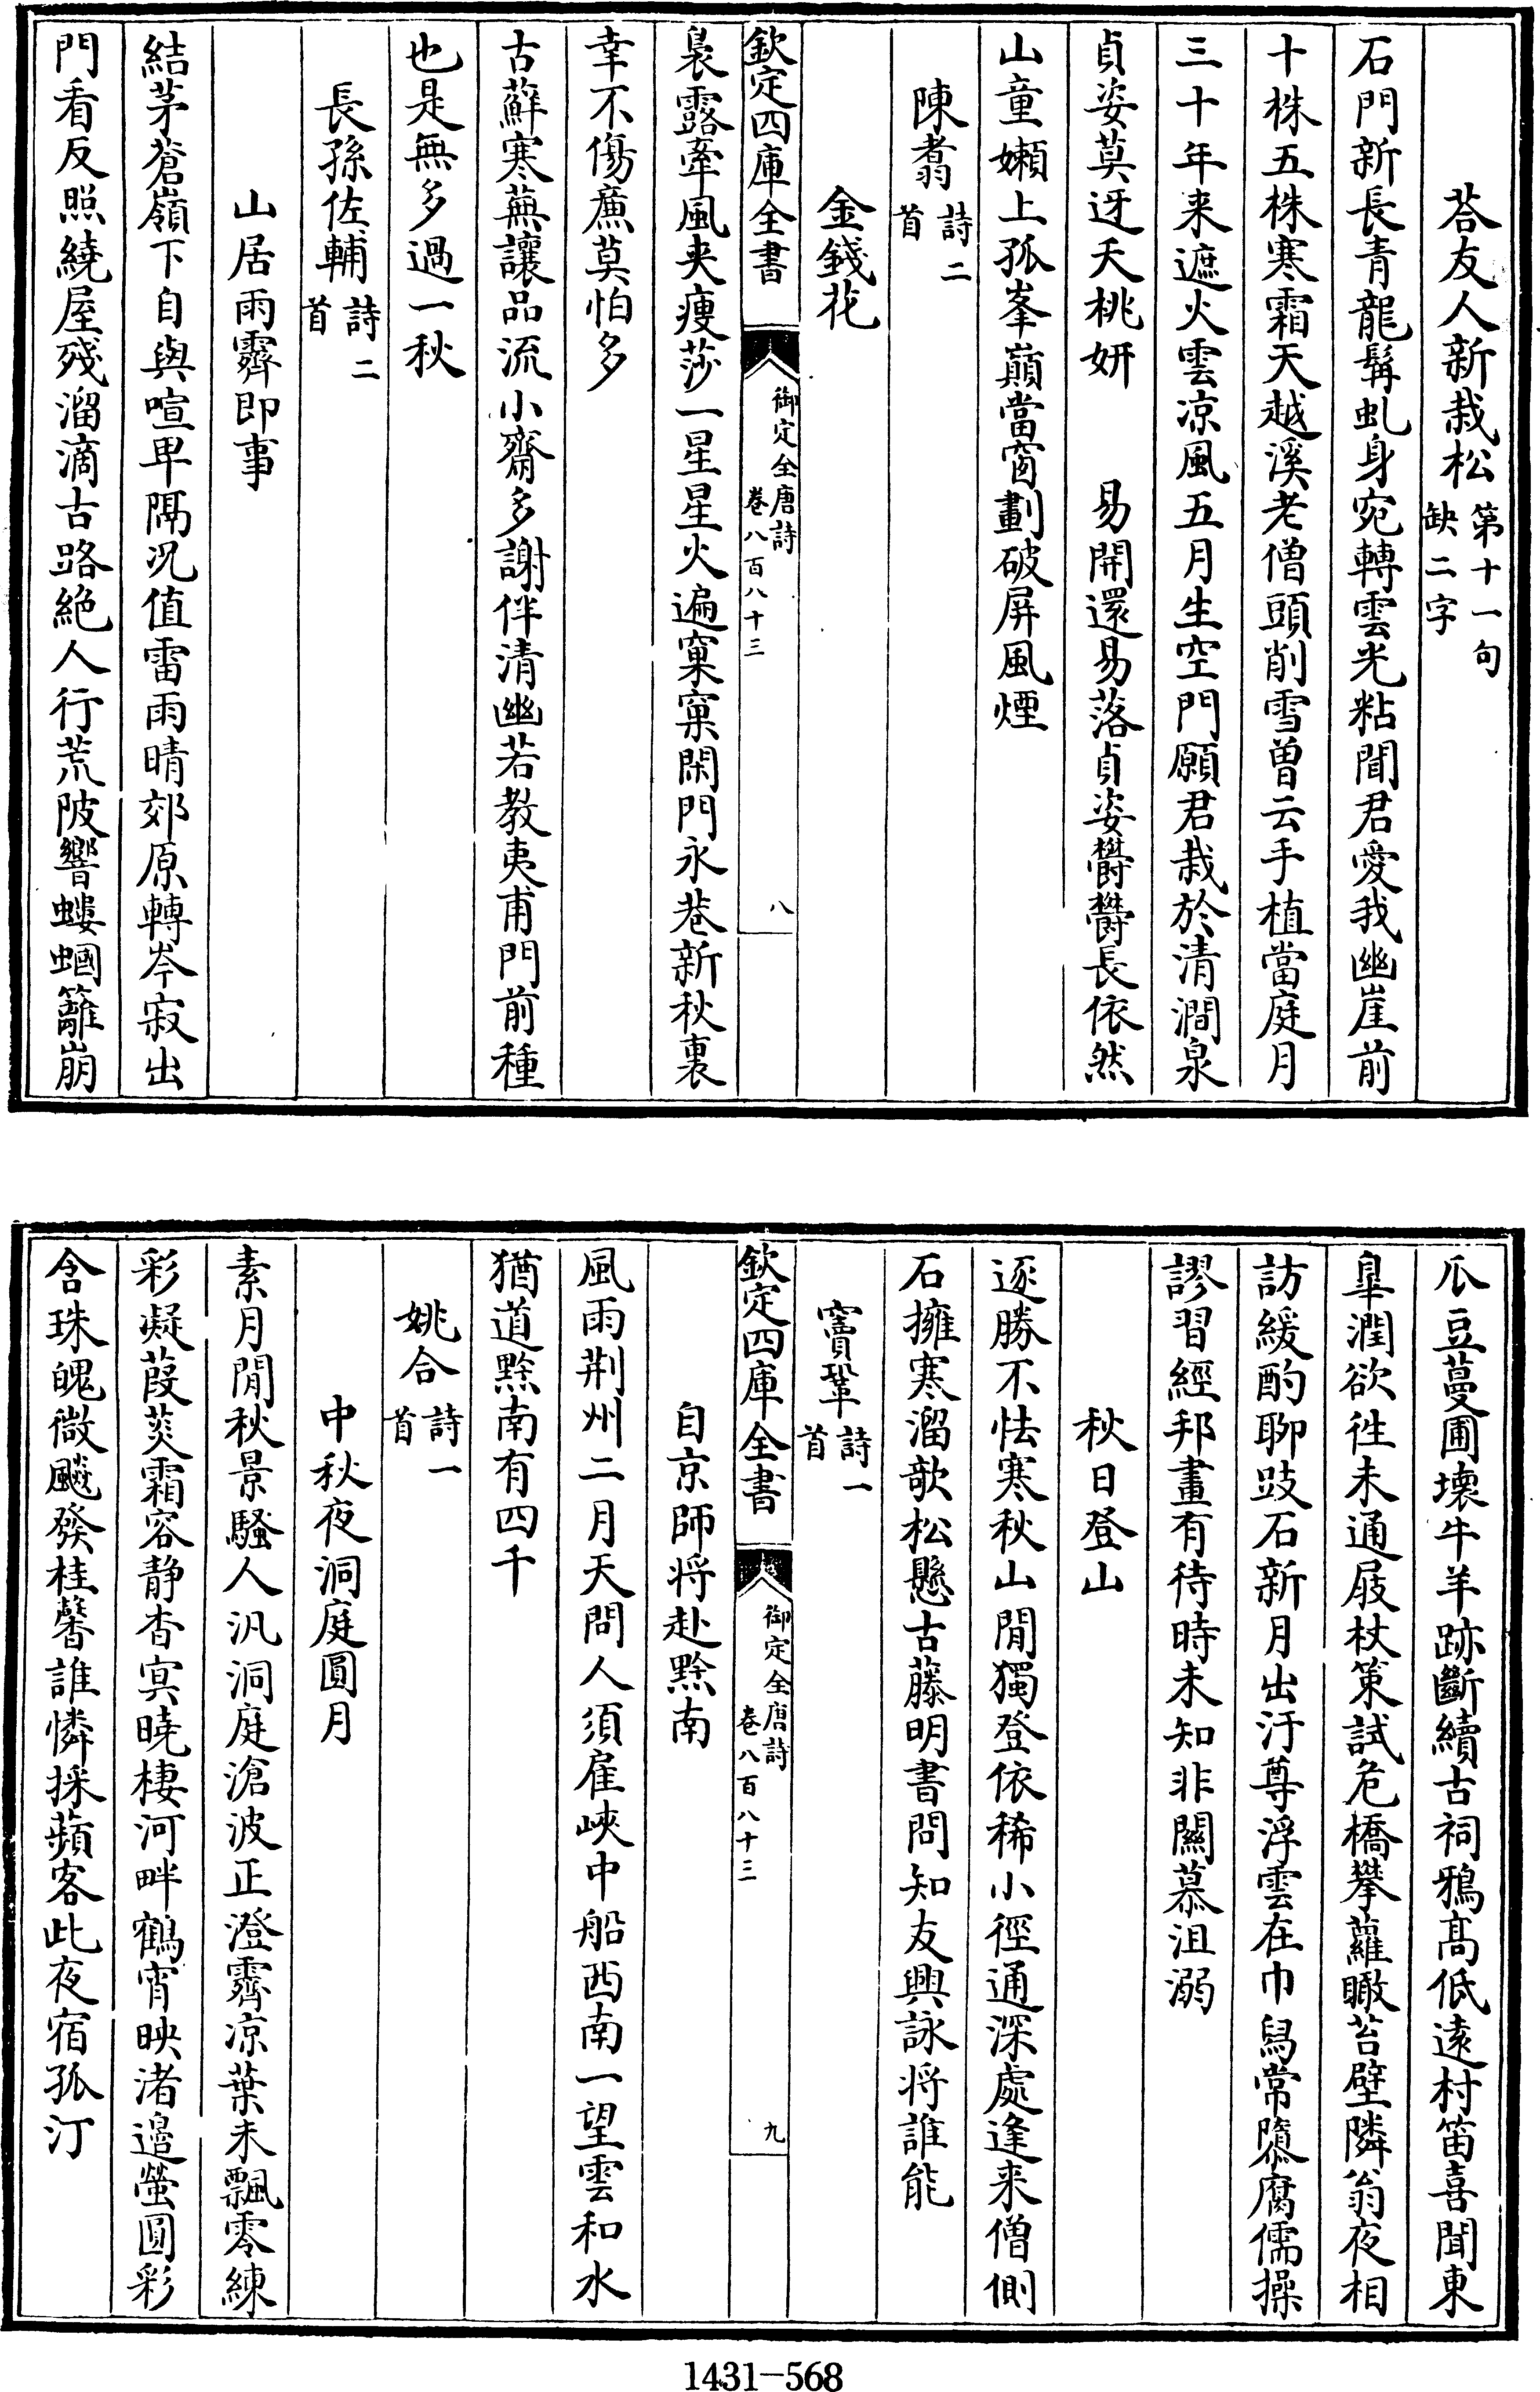 荅友人新栽松第十一句缺二字
石門新長青龍髯虬身宛轉雲光粘聞君愛我幽崖前
十株五株寒霜天越溪老僧頭削雪曽云手植當庭月
三十年来遮火雲凉風五月生空門願君栽於清澗泉
貞姿莫迓夭桃妍　　易開還易落貞姿欝欝長依然
山童嬾上孤峯巔當窗劃破屏風煙
陳翥詩二首
金錢花
欽定四庫全書
御定全唐詩
卷八百八十三
八
裊露牽風夹痩莎一星星火遍窠窠閑門永巷新秋裏
幸不傷㢘莫怕多
古蘚寒蕪讓品流小齋多謝伴清幽若教夷甫門前種
也是無多過一秋
長孫佐輔詩二首
山居雨霽即事
結茅蒼嶺下自與喧卑隔况值雷雨晴郊原轉岑寂出
門看反照繞屋殘溜滴古路絶人行荒陂響螻蟈籬崩
瓜豆蔓圃壊牛羊跡斷續古祠鴉髙低逺村笛喜聞東
臯潤欲徃未通屐杖策試危橋攀蘿瞰苔壁隣翁夜相
訪緩酌聊跂石新月出汙尊浮雲在巾舄常隳腐儒操
謬習經邦畫有待時未知非關慕沮溺
秋日登山
逐勝不怯寒秋山閒獨登依稀小徑通深處逢来僧側
石擁寒溜欹松懸古藤明書問知友興詠将誰能
竇鞏詩一首
欽定四庫全書
御定全唐詩
卷八百八十三
九
自京師将赴黔南
風雨荆州二月天問人須雇峽中船西南一望雲和水
猶道黔南有四千
姚合詩一首
中秋夜洞庭圓月
素月閒秋景騷人汎洞庭滄波正澄霽凉葉未飄零練
彩凝葭菼霜容静杳冥曉棲河畔鶴宵映渚邉螢圓彩
含珠魄微飈發桂馨誰憐採蘋客此夜宿孤汀
1431—568